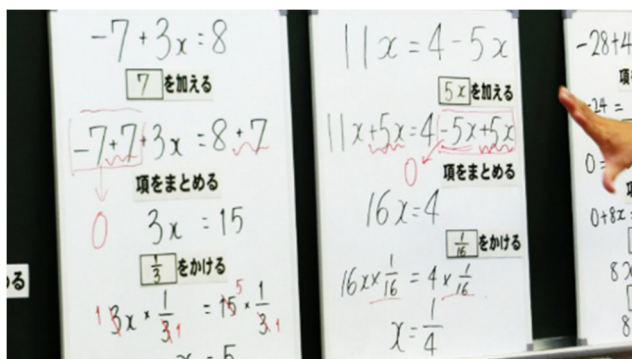 -7+3x=8
7を加える
-7+7+3x=8+7
項をまとめる
0
3x=15
1/3をかける
3x×1/3=15×1/3
1 1 5 1
x=5
11x=4-5x
5xを加える
11x+5x=4-5x+5x
0
項をまとめる
16x=4
1/16をかける
16x×1/16=4×1/16
x=1/4
-28+4
項
-24=
0=
0+8x
8x
8
る